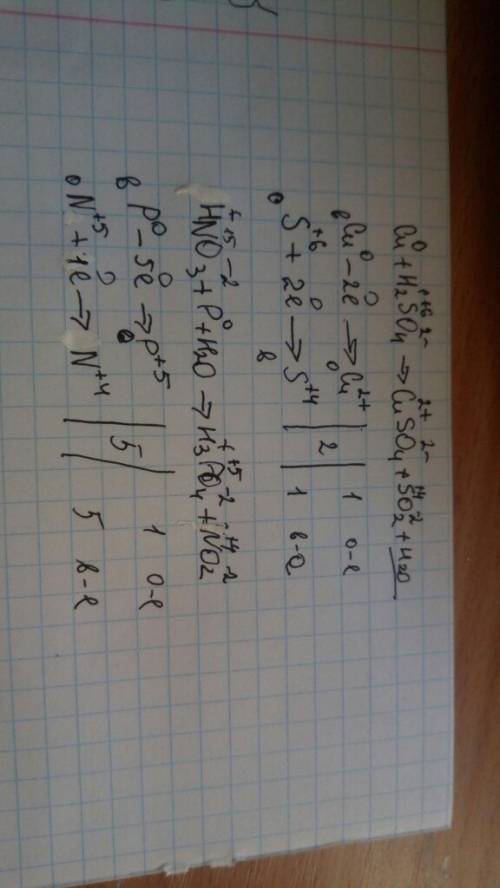 Cu⁰ + H₂⁺S⁺⁶O₄²⁻ → Cu²⁺SO₄²⁻ + S⁺⁴O₂⁻² + H₂O
в Cu⁰ - 2e → Cu²⁺ | | 1 о-е
о S⁺⁶ + 2e → S⁺⁴ | 2 | 1 в-е
H⁺N⁺⁵O₃⁻² + P⁰ + H₂O → H₃⁺P⁺⁵O₄⁻² + N⁺⁴O₂⁻²
в P⁰ - 5e → P⁺⁵ | 5 | 1 о-е
о N⁺⁵ + 1e → N⁺⁴ | | 5 в-е